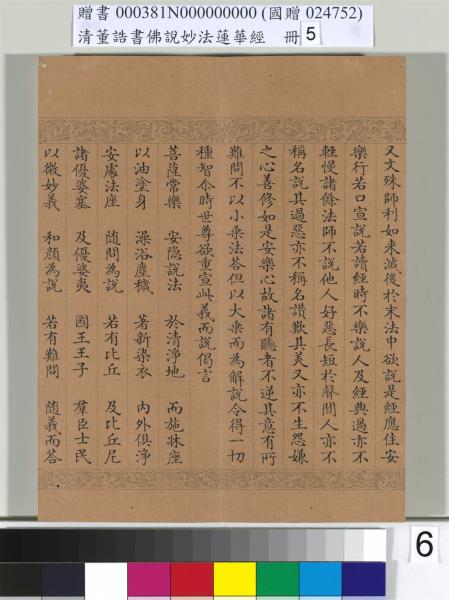 贈書 000381N000000000 (國贈 024752)
清董誥書佛說妙法蓮華經 冊 5
又文殊師利如来滅後於末法中欲說是經應住安
樂行若口宣說若讀經時不樂說人及經典過亦不
輕慢諸餘法師不說他人好惡長短於聲聞人亦不
稱名說其過惡亦不稱名讚歎其美又亦不生怨嫌
之心善修如是安樂心故諸有聽者不逆其意有所
難問不以小乗法答但以大乗而為解說令得一切
種智尒時世尊欲重宣此義而說偈言
菩薩常樂 安隐說法 於清淨地 而施牀座
以油塗身 澡浴塵穢 著新染衣 內外俱淨
安處法座 随問為說 若有比丘 及比丘尼
諸優婆塞 及優婆夷 國王王子 羣臣士民
以微妙義 和顔為說 若有難問 随義而答
6